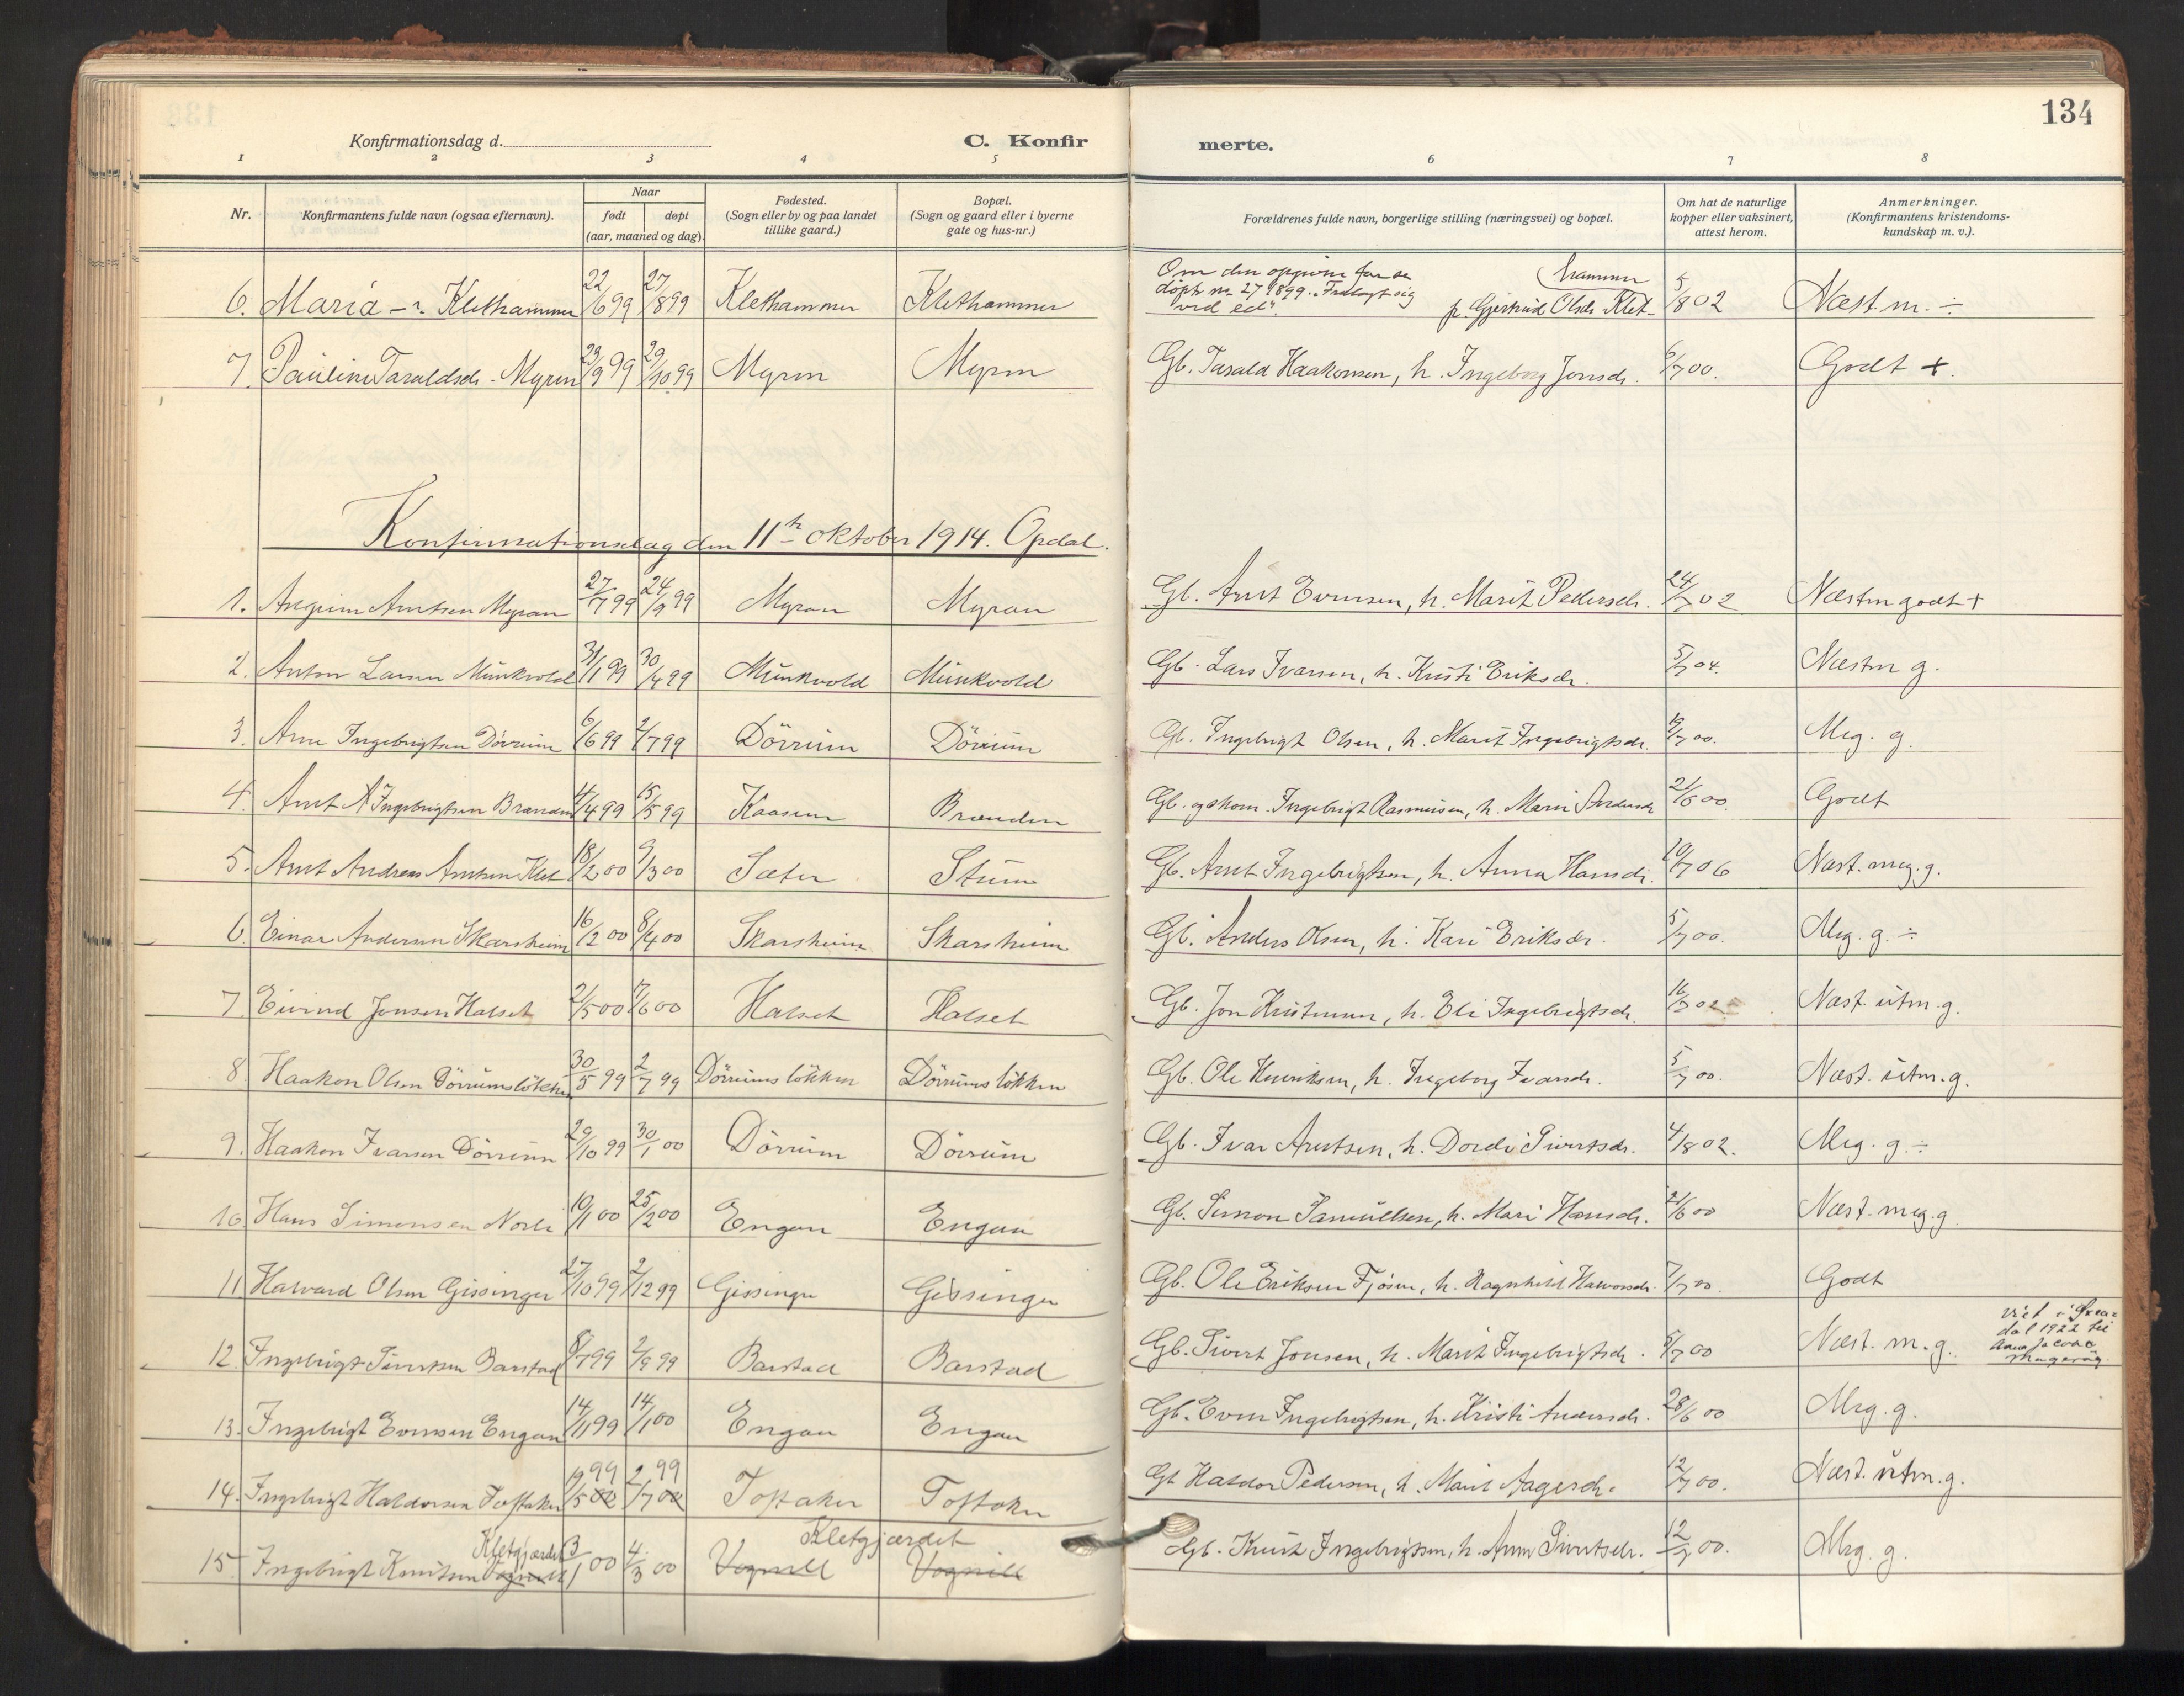 134
Konfirmationsdag d. C. Konfirmerte.
1 2 3 4 5 6 7 8
Nr. Konfirmantens fulde navn (ogsaa efternavn). Naar født døpt (aar, maaned og dag). Fødested. (Sogn eller by og paa landet tillike gaard.) Bopæl. (Sogn og gaard eller i byerne gate og hus-nr.) Forældrenes fulde navn, borgerlige stilling (næringsvei) og bopæl. Om hat de naturlige kopper eller vaksinert, attest herom. Anmerkninger. (Konfirmantens kristendoms-kundskap m. v.).
6. Maria Klethammer 22/6 99 27/8 99 Klethammer Klethammer p. Gjertrud Olsdr. Klethammer 5/8 02 Næst. m. ÷
7. Pauline Taraldsdr. Myren 23/9 99 29/10 99 Myren Myren Gb. Tarald Haakonsen, h. Ingeborg Jonsdr. 6/7 00. Godt +.
Konfirmationsdag den 11te oktober 1914. Opdal.
1. Arnt­sen Myran 27/7 99 24/9 99 Myran Myran Gb. Arnt Evensen, h. Marit Pedersdr. 24/7 02 Næsten godt +
2. Anton Larsen Munkvold 31/1 99 30/4 99 Munkvold Munkvold Gb. Lars Ivarsen, h. Kristi Eriksdr. 5/7 04. Næsten g.
3. Arne Ingebrigtsen Dörrum 6/6 99 2/7 99 Dörrum Dörrum Gb. Ingebrigt Olsen, h. Marit Ingebrigtsdr. 19/7 00. Meg. g.
4. Arnt A Ingebrigtsen Brænden 4/4 99 15/5 99 Kaasen Brænden Gb. og skom. Ingebrigt Rasmussen, h. Mari Andersdr. 21/6 00. Godt
5. Arnt Andreas Arntsen Klet 18/2 00 9/3 00 Sæter Stuen Gb. Arnt Ingebrigtsen, h. Anna Hansdr. 10/7 06 Næst. meg. g.
6. Einar Andersen Skarsheim 16/2 00 8/4 00 Skarsheim Skarsheim Gb. Anders Olsen, h. Kari Eriksdr. 5/7 00. Meg. g. ÷
7. Eivind Jonsen Halset 2/5 00 17/6 00 Halset Halset Gb. Jon Kristensen, h. Eli Ingebrigtsdr. 16/7 02 Næst. utm. g.
8. Haakon Olsen Dörrumslökken 30/5 99 2/7 99 Dörrumslökken Dörrumslökken Gb. Ole Henriksen, h. Ingeborg Ivarsdr. 5/7 00. Næst. utm. g.
9. Haakon Ivarsen Dörrum 29/10 99 30/1 00 Dörrum Dörrum Gb. Ivar Arntsen, h. Dordi Sivertsdr. 4/8 02. Meg. g. ÷
10. Hans Simonsen Norli 10/1 00 25/2 00 Engan Engan Gb. Simon Samuelsen, h. Mari Hansdr. 21/6 00 Næst. meg. g.
11 Halvard Olsen Gissinger 27/10 99 2/12 99 Gissinger Gissinger Gb. Ole Eriksen Fjösen, h. Ragnhild Halvorsdr. 7/7 00. Godt
12. Ingebrigt Sivertsen Barstad 8/7 99 2/9 99 Barstad Barstad Gb. Sivert Jonsen, h. Marit Ingebrigtsdr. 5/7 00 Næst. m. g.
13. Ingebrigt Evensen Engan 14/11 99 14/1 00 Engan Engan Gb. Even Ingebrigtsen, h. Kristi Andersdr. 28/6 00 Meg. g.
14. Ingebrigt Haldorsen Toftaker 19/5 00 99 2/7 00 99 Toftaker Toftaker Gb Haldor Pedersen, h. Marit Aagesdr. 12/7 00. Næst. utm. g.
15. Ingebrigt Knutsen Vognill Kletgjærdet 3/1 00 4/3 00 Vognill Vognill Kletgjærdet Gb. Knut Ingebrigtsen, h. Anne Sivertsdr. 12/7 00. Meg. g.